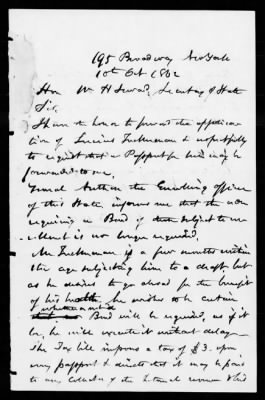 195 Broadway New York
10th Oct 1862
Hon Wm H Seward, Secretary of State
Sir,
I have the honor to forward the applica-
tion of Lucius Tuckerman & respectfully
to request that a Passport for him may be
forwarded to me.
the Enrolling officer
of this State, informs me that the
requiring a Bond of those subject to en-
rollment is no longer required.
Mr Tuckerman is a few months within
the age subjecting him to a draft but
as he desires to go abroad for the benefit
of his health, he wishes to be certain
whether or not a
Bond will be required, as if it
be, he will execute it without delay
The Tax bill imposes a tax of $3. upon
every passport & directs that it may be paid
to any collector of the Internal revenue &